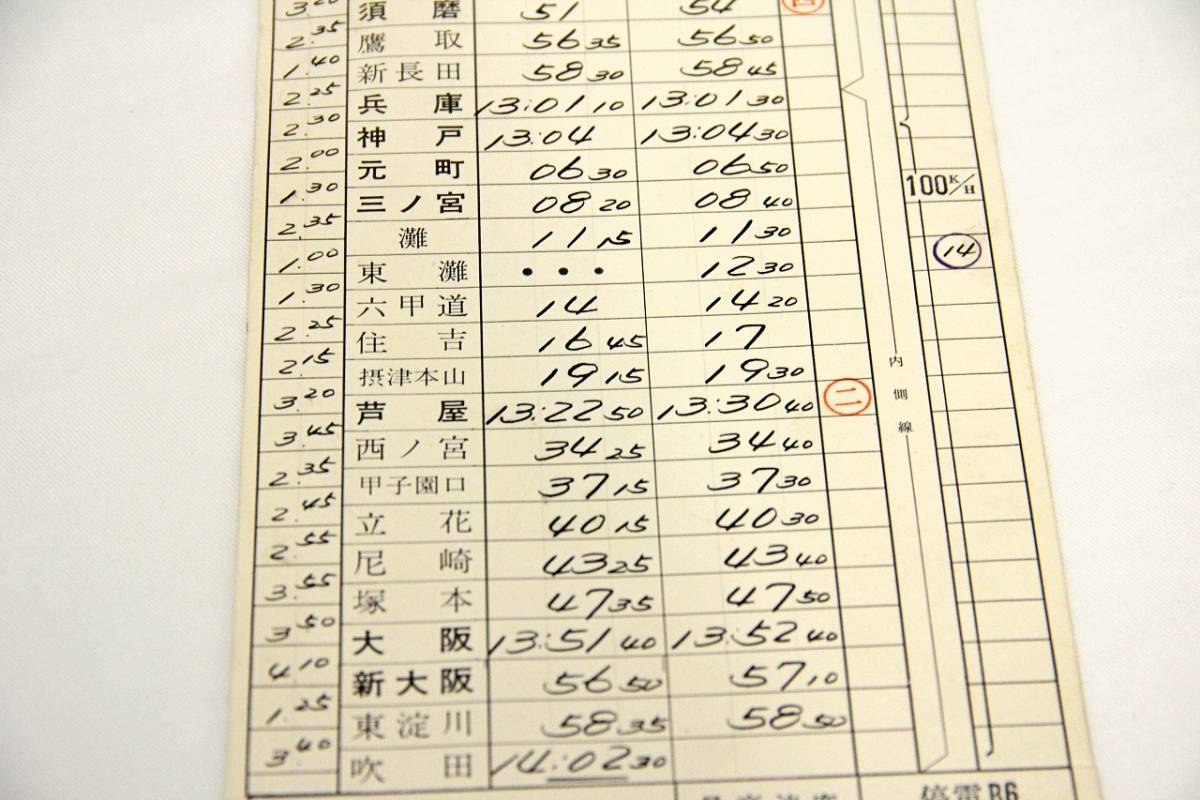 3.20 須磨 51 54
2.35 鷹取 56 35 56 50
1.40 新長田 58 30 58 45
2.25 兵庫 13:01 10 13:01 30
2.30 神戸 13:04 13:04 30
2.00 元町 06 30 06 50
1.30 三ノ宮 08 20 08 40 100K/H
2.35 灘 11 15 11 30
1.00 東灘 ・・・ 12 30 14
1.30 六甲道 14 14 20
2.25 住吉 16 45 17
2.15 摂津本山 19 15 19 30
3.20 芦屋 13:22 50 13:30 40 二
3.45 西ノ宮 34 25 34 40
2.35 甲子園口 37 15 37 30
2.45 立花 40 15 40 30
2.55 尼崎 43 25 43 40
3.55 塚本 47 35 47 50
3.50 大阪 13:51 40 13:52 40
4.10 新大阪 56 50 57 10
1.25 東淀川 58 35 58 50
3.40 吹田 14:02 30
内側線
停電B6